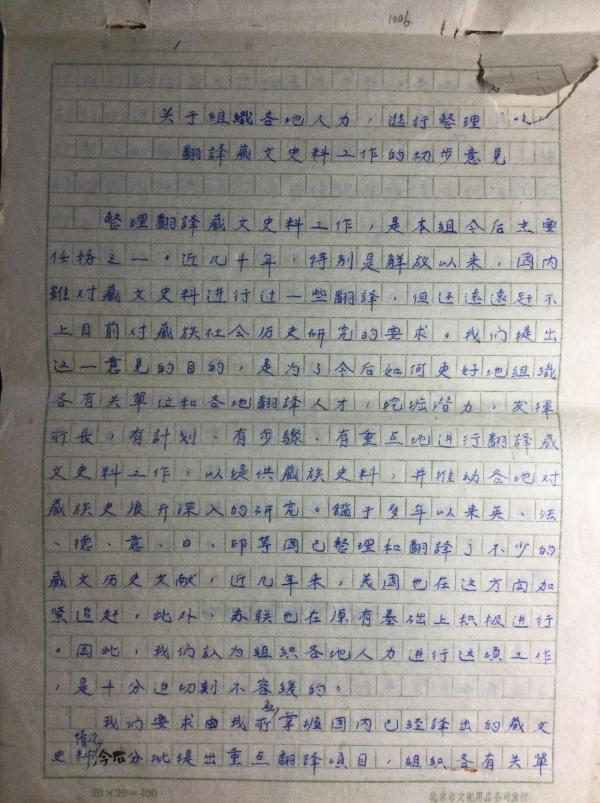 1006
1
关于組織各地人力，進行整理
翻譯藏文史料工作的初步意見
整理翻譯藏文史料工作，是本組今后主要
任務之一。近几十年，特别是解放以来，国内
雖对藏文史料进行过一些翻譯，但还遠遠赶不
上目前对藏族社会历史研究的要求。我们提出
这一意見的目的，是为了今后如何更好地組織
各有关單位和各地翻譯人才，挖掘潛力，发揮
所長，有計划、有步驟、有重点地进行翻譯藏
文史料工作，以提供藏族史料，并推动各地对
藏族史展开深入的研究。鑑于多年以来英、法
、德、意、日、印等国已整理和翻譯了不少的
藏文历史文献，近几年来，美国也在这方向加
紧追赶。此外，苏联也在原有基础上积极进行
。因此，我们认为組织各地人力进行这項工作
，是十分迫切刻不容緩的。
我们要求由我所掌握国内已經譯出的藏文
史料情况，今后分批提出重点翻譯項目，組织各有关單
20×20=400
北京市文化用品公司发行